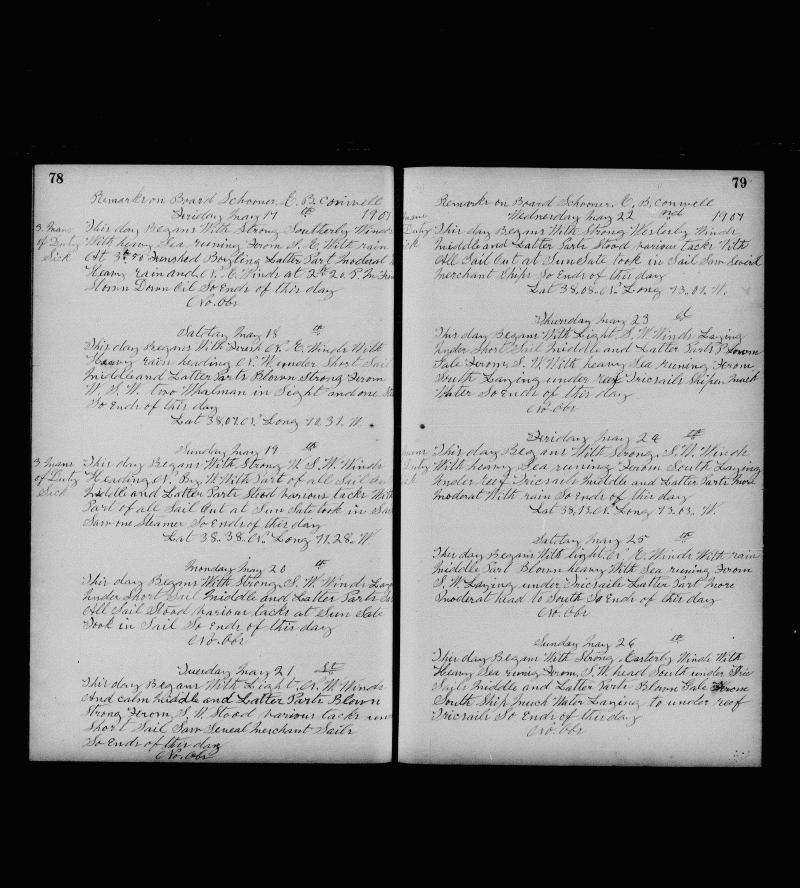 78
Remarks on Board Schooner C. B. Conwell
Friday May 17 th 1907
3 mans of Duty Sick
This day Begans With Strong Southerly Winds
With heavy Sea runing From S. E. With rain
At finished Boyling Latter Part moderat
Heavy rain and N. E. Winds at P. M.
Down Oil So Ends of this day
No. Obs
Satday May 18 th
This day Begans With Fresh N. E. Winds With
Heavy rain heading N. W. under Short Sail
Middle and Latter Parts Blown Strong From
W. S. W. two Whalman in Sight and one
So Ends of this day
Lat 38.07. N. Long 70.31. W.
Sunday May 19 th
3 mans of Duty Sick
This day Begans With Strong W. S. W. Winds
Heading N. By W. With Part of all Sail out
Middle and Latter Parts Stood various tacks With
Part of all Sail Out at Sun Sate took in Sail
Saw one Steamer So Ends of this day
Lat 38.38. N. Long 71.28. W
Monday May 20 th
This day Begans With Strong, S. W. Winds
under Short Sail Middle and Latter Parts
All Sail Stood variour tacks at Sun Sate
Took in Sail So Ends of this day
No. Obs
Tuerday May 21 St
This day Begans With Light. N. W. Winds
And calm middle and Latter Parts Blown
Strong From, S. W. Stood variour tacks
Short Sail Saw Several merchant Sails
So Ends of this day
No. Obs
79
Remarks on Board Schooner, C. B. Conwell
Wednerday May 22 nd 1907
Duty
This day Begans With Strong Westerly Winds
Middle and Latter Parts Stood variour tacks With
All Sail Out at Sun Sate took in Sail Saw Several
merchant Ships So Ends of this day
Lat 38.08. N. Long 73.01. W.
Thurrday May 23
This day Begans With Light S. W. Winds Laying
under Short Sail Middle and Latter Parts Blown
Gale From S. W. With heavy Sea runing From
South Laying under reef Tricsails Shipen much
Water So Ends of this day
No Obs
Friday May 24 th
Duty
This day Begans With Strong, S. W. Winds
With heavy Sea runing From South Laying
under reef Tricsails Middle and Latter Parts more
moderat With rain So Ends of this day
Lat 38.13. N. Long 73.03. W.
Satday May 25 th
Ther day Begans With light. N. E. Winds With rain
Middle Part Blown heavy With Sea runing From
S. W. Laying under Tricsails Latter Part more
moderat head to South So Ends of this day
No. Obs
Sunday May 26 th
Ther day Begans With Strong, Easterly Winds With
Heavy Sea runing From S. W. head South under Tric
Sails Middle and Latter Parts Blown Gale From
South Ship much Water Laying to under reef
Tricsails So Ends of this day
No. Obs